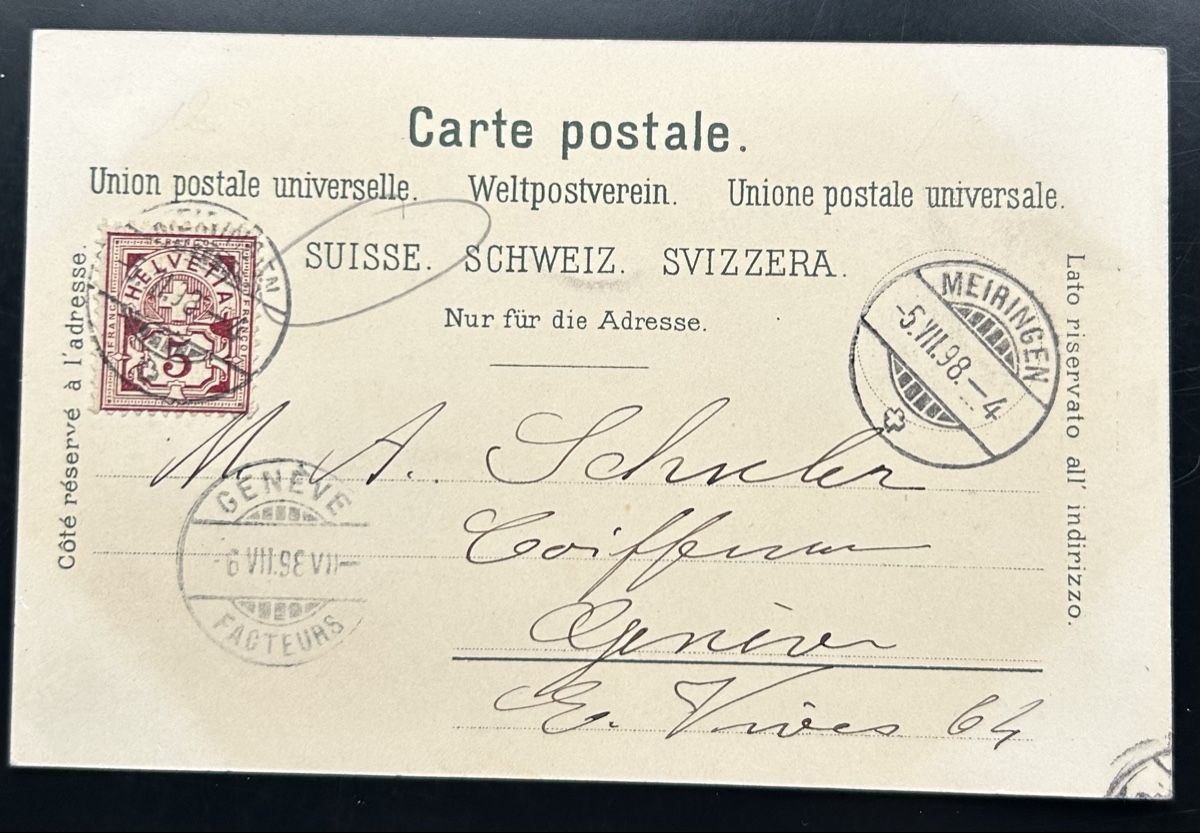 Carte postale.
Union postale universelle. Weltpostverein. Unione postale universale.
SUISSE. SCHWEIZ. SVIZZERA.
Nur für die Adresse.
Côté réservé à l'adresse.
Lato riservato all' indirizzo.
HELVETIA
FRANCO
5
MEIRINGEN
-5.VII.98.-4
M. A. Schuler
Coiffeur
Genève
E. Vives 64
GENÈVE
-6 VII.98 VII-
FACTEURS